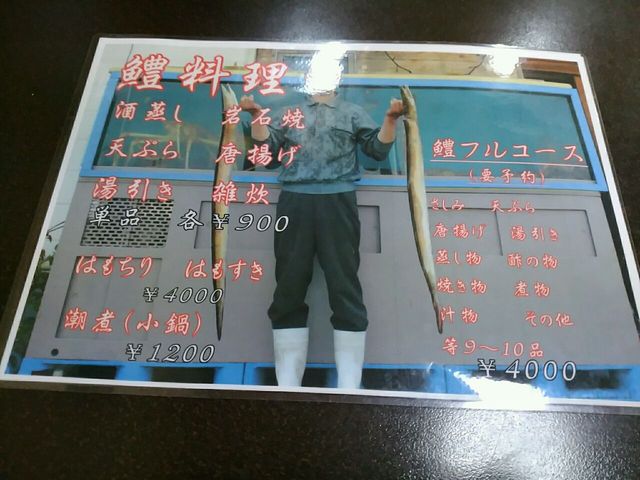 鱧料理
酒蒸し 岩石焼
天ぷら 唐揚げ
湯引き 雑炊
単品 各¥900
はもちり はもすき
¥4000
潮煮(小鍋)
¥1200
鱧フルコース
(要予約)
さしみ 天ぷら
唐揚げ 湯引き
蒸し物 酢の物
焼き物 煮物
汁物 その他
等9~10品
¥4000